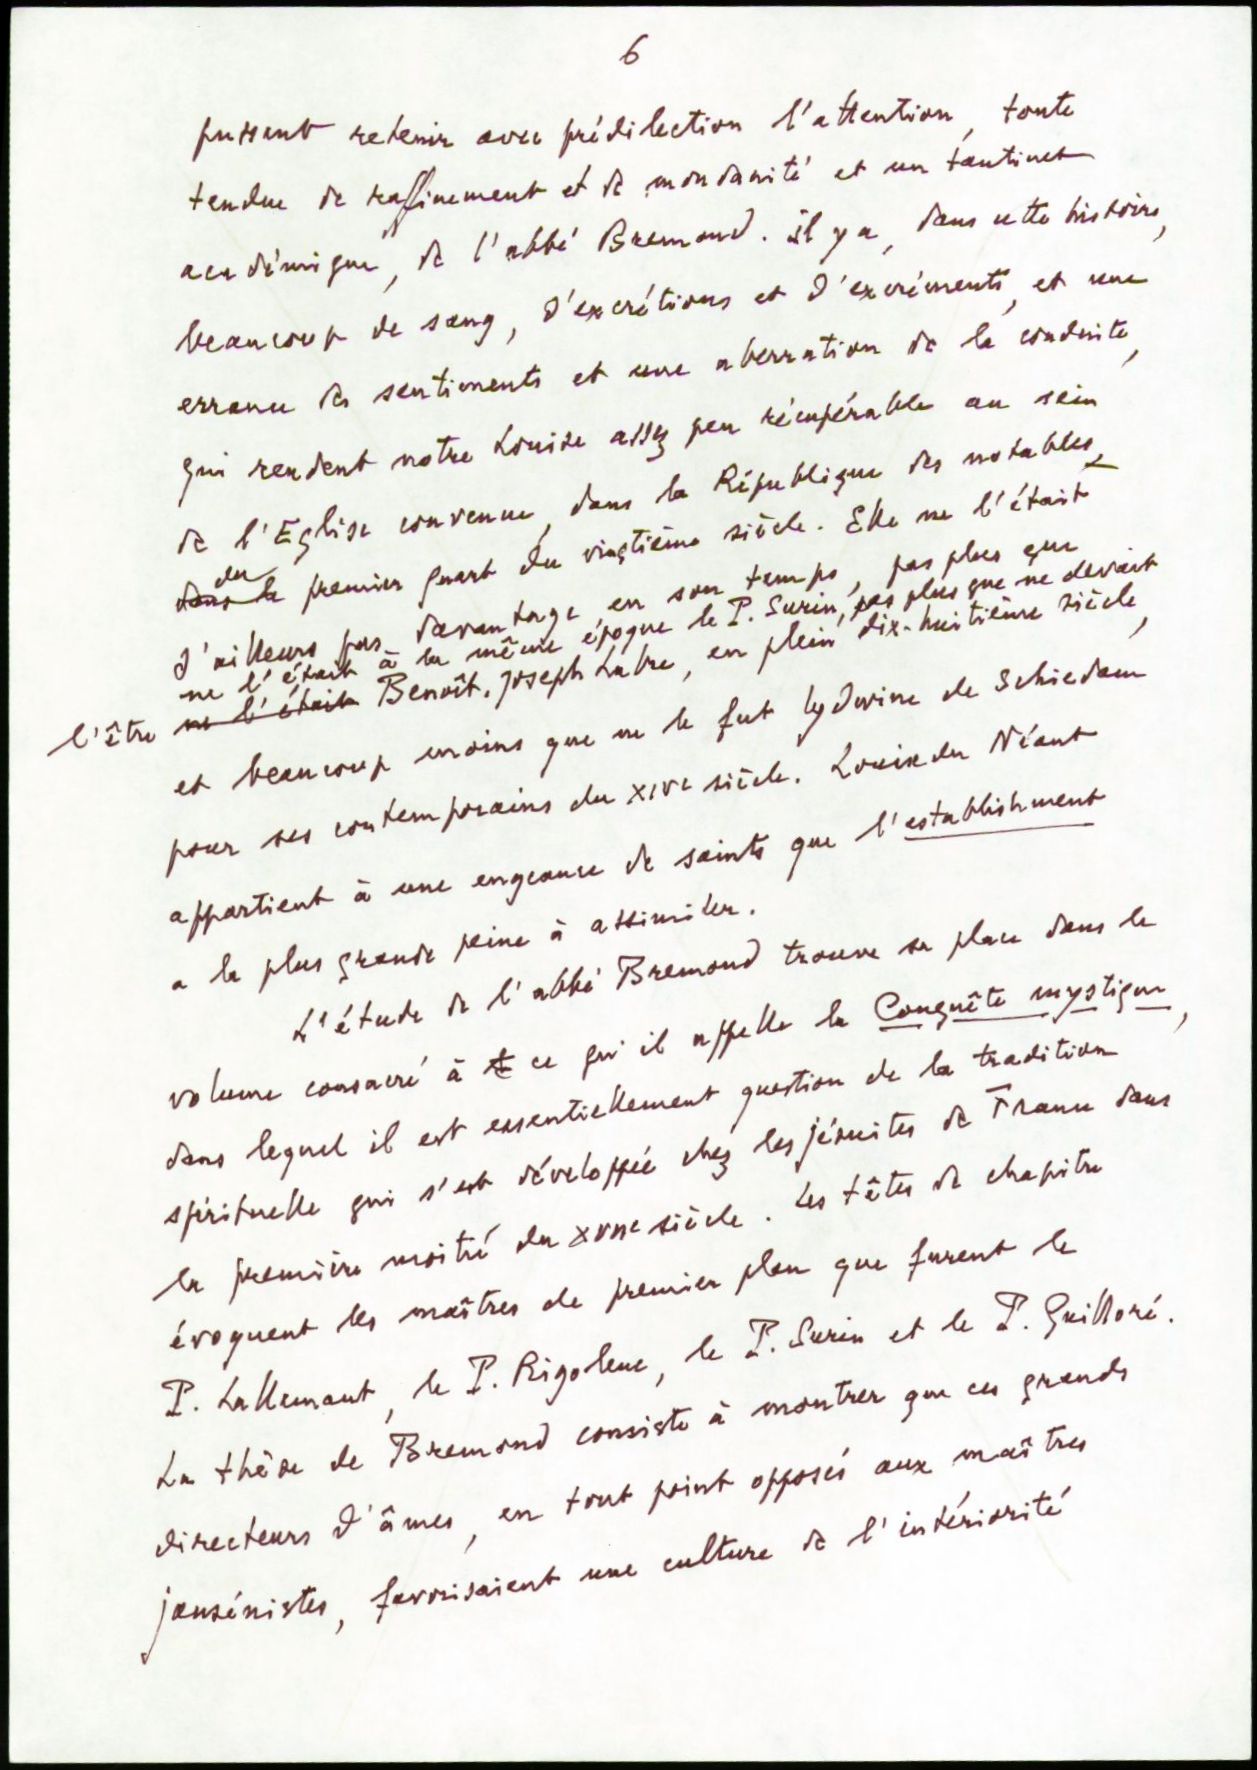 6
pussent retenir avec prédilection l'attention, toute
tendue de raffinement et de mondanité et un tantinet
académique, de l'abbé Bremond. Il y a, dans cette histoire,
beaucoup de sang, d'excrétions et d'excréments, et une
errance des sentiments et une aberration de la conduite,
qui rendent notre Louise assez peu récupérable au sein
de l'Eglise convenue, dans la République des notables,
dans le du premier quart du vingtième siècle. Elle ne l'était
d'ailleurs pas davantage en son temps, pas plus que
ne l'était à la même époque le P. Surin, pas plus que ne devait
l'être ne l'était Benoît-Joseph Labre, en plein dix-huitième siècle,
et beaucoup moins que ne le fut Lydwine de Schiedam
pour ses contemporains du XIVe siècle. Louise du Néant
appartient à une engeance de saints que l'establishment
a la plus grande peine à assimiler.
L'étude de l'abbé Bremond trouve sa place dans le
volume consacré à ce qui il appelle la Conquête mystique,
dans lequel il est essentiellement question de la tradition
spirituelle qui s'est développée chez les jésuites de France dans
la première moitié du XVIIe siècle. Les têtes de chapitre
évoquent les maîtres de premier plan que furent le
P. Lallemant, le P. Rigoleuc, le P. Surin et le P. Guilloré.
La thèse de Bremond consiste à montrer que ces grands
directeurs d'âmes, en tout point opposés aux maîtres
jansénistes, favorisaient une culture de l'intériorité